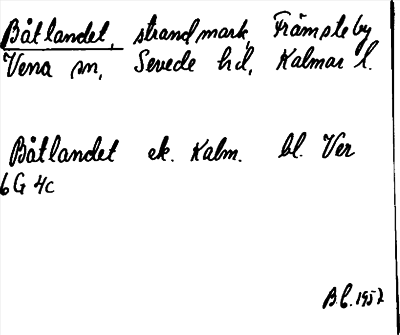 Båtlandet, strandmark, Främsteby
Vena sn, Sevede hd, Kalmar l.
Båtlandet ek. Kalm. bl. Ver
6G 4c
B.C. 1952